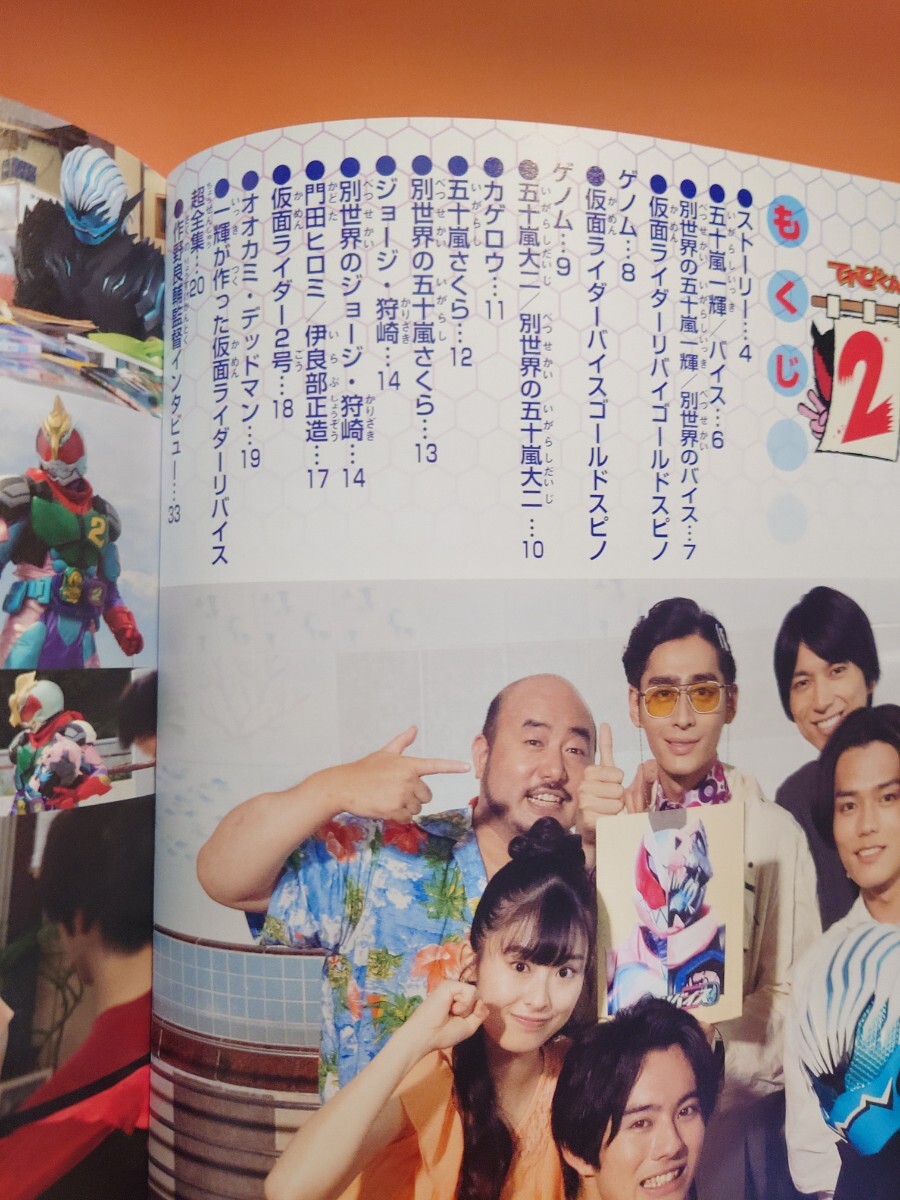 てれびくん
2
もくじ
●ストーリー…4
●五十嵐一輝／バイス…6
●別世界の五十嵐一輝／別世界のバイス…7
●仮面ライダーリバイゴールドスピノ
ゲノム…8
●仮面ライダーバイスゴールドスピノ
ゲノム…9
●五十嵐大二／別世界の五十嵐大二…10
●カゲロウ…11
●五十嵐さくら…12
●別世界の五十嵐さくら…13
●ジョージ・狩崎…14
●別世界のジョージ・狩崎…14
●門田ヒロミ／伊良部正造…17
●仮面ライダー2号…18
●オオカミ・デッドマン…19
●一輝が作った仮面ライダーリバイス
超全集…20
●作野良輔監督インタビュー…33